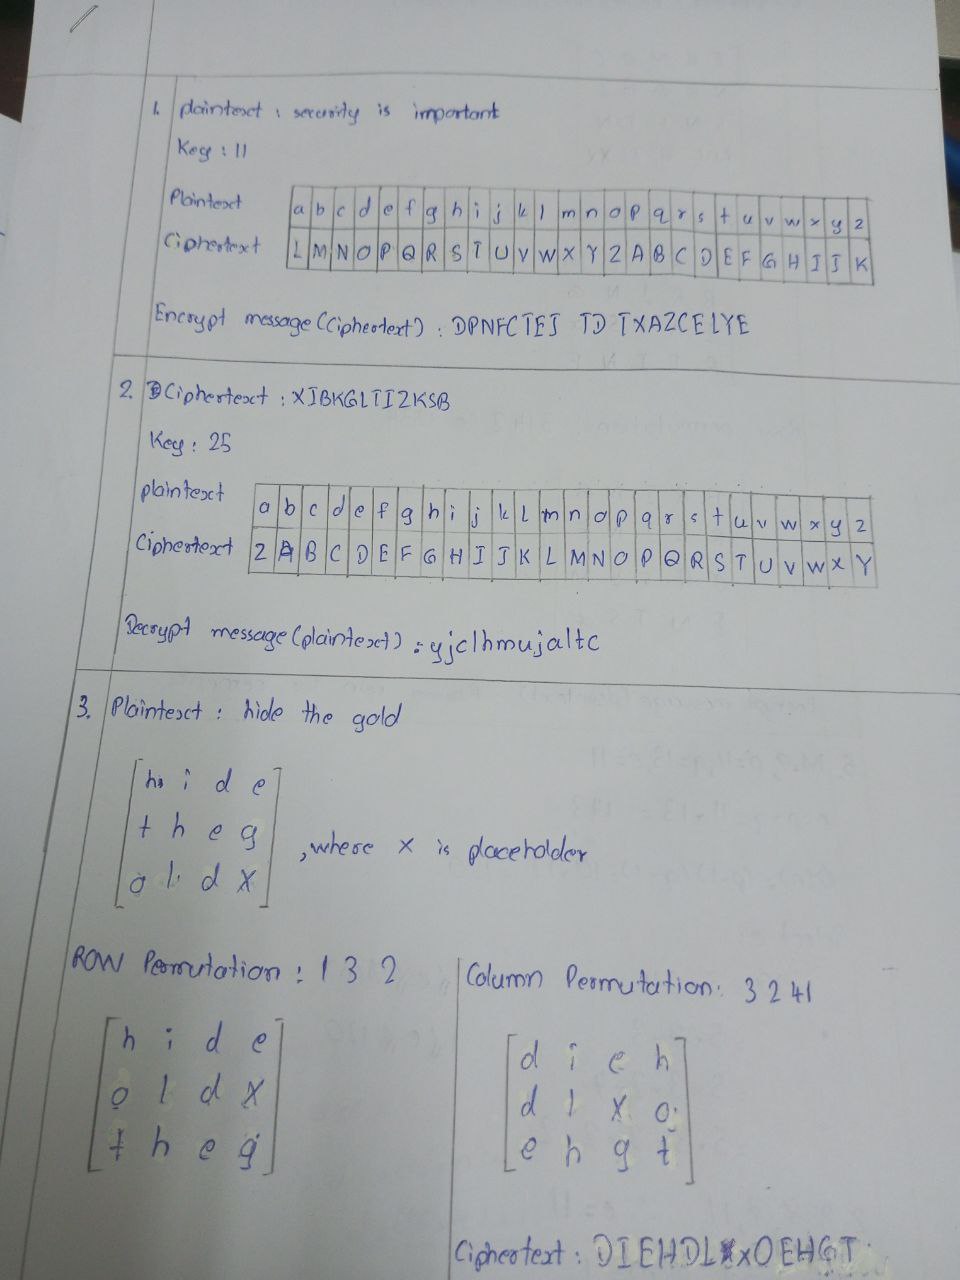 1. plaintext : security is important
Key : 11
Plaintext a b c d e f g h i j k l m n o p q r s t u v w x y z
Ciphertext L M N O P Q R S T U V W X Y Z A B C D E F G H I J K
Encrypt message (ciphertext) : DPNFCTEJ TD TXAZCELYE
2. Ciphertext : XIBKGLTIZKSB
Key : 25
plaintext a b c d e f g h i j k l m n o p q r s t u v w x y z
Ciphertext Z A B C D E F G H I J K L M N O P Q R S T U V W X Y
Decrypt message (plaintext) : yjclhmujaltc
3. Plaintext : hide the gold
h i d e
t h e g
o l d x
, where x is placeholder
ROW Permutation : 1 3 2
h i d e
o l d x
t h e g
Column Permutation: 3 2 4 1
d i e h
d l x o
e h g t
Ciphertext : DIEHDLXOEHGT